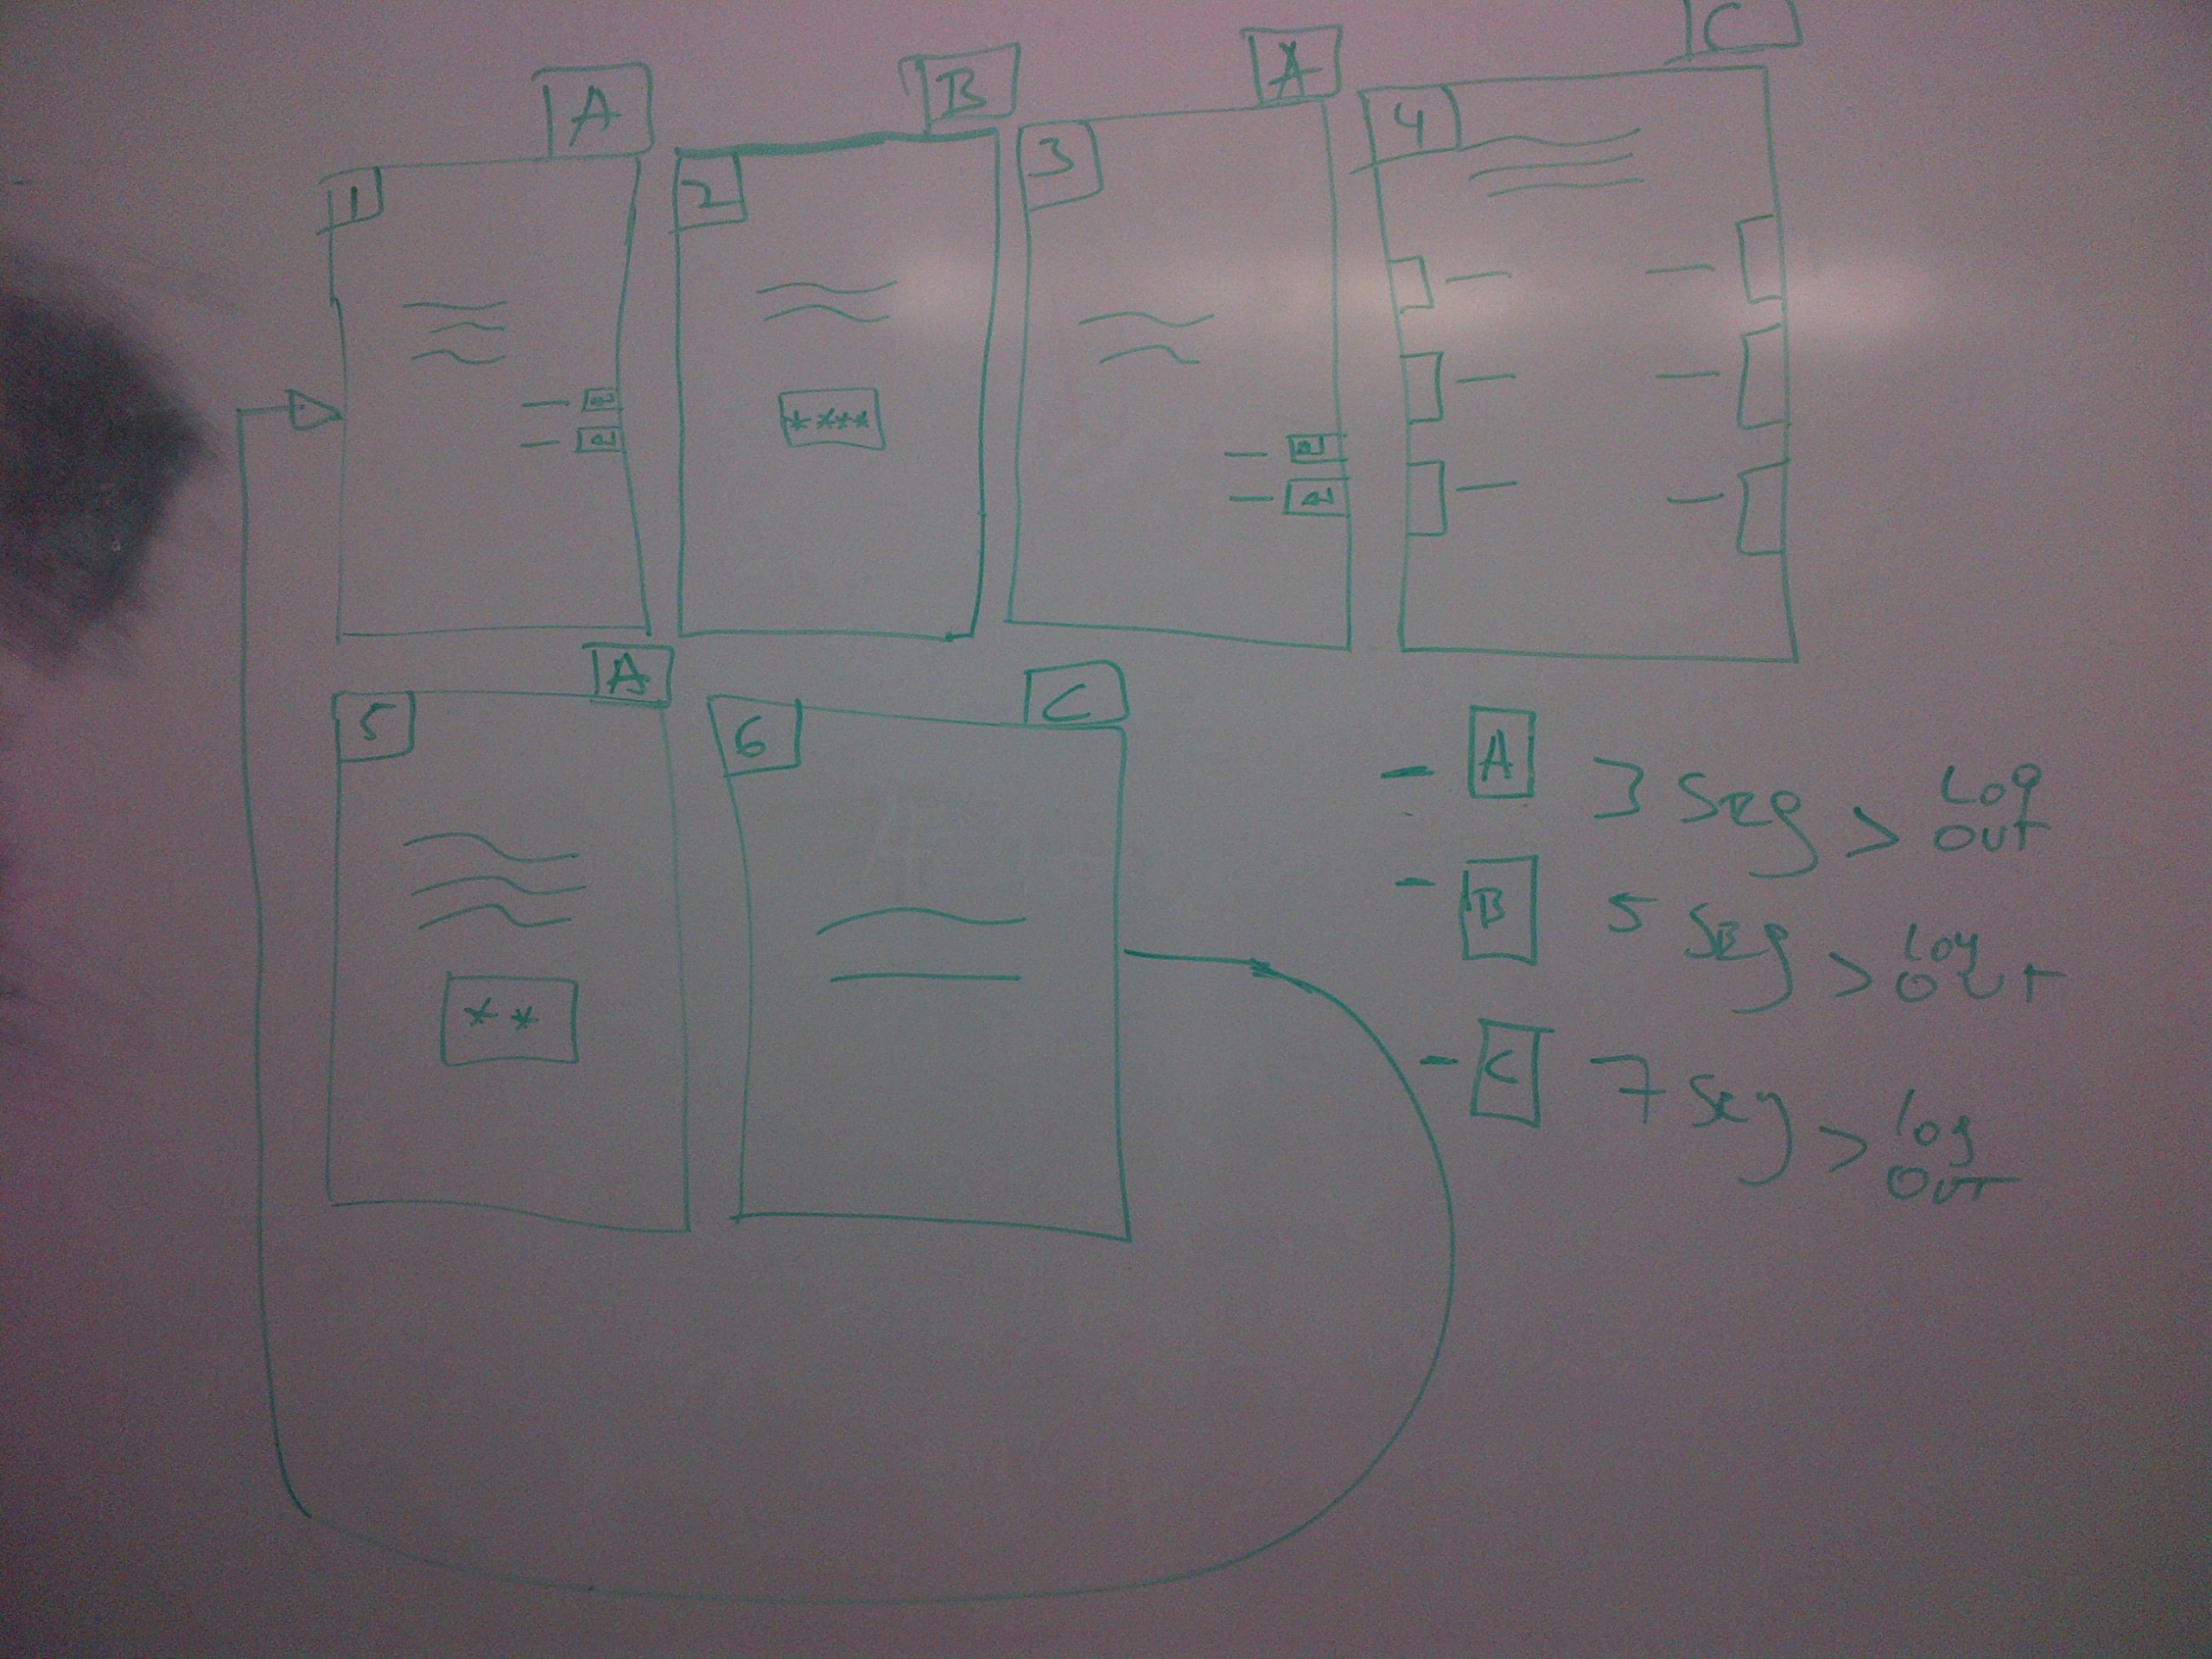 A
B
A
C
1
2
3
4
****
A
C
5
6
**
- A 3 Seg > Log
OUT
- B 5 Seg > Log
OUT
- C 7 Seg > log
OUT